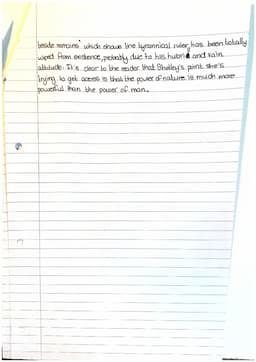 beside remains' which shows the tyrannical ruler has been totally
wiped from existence, probably due to his hubris and vain
attitude. It's clear to the reader that Shelley's point she's
trying to get across is that the power of nature is much more
powerful than the power of man.